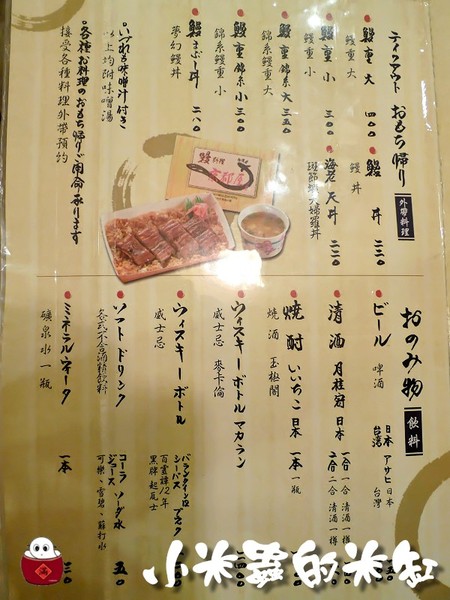 テイクアウト おもち帰り 外帶料理
鰻重 大 四〇〇
鰻重 大
鰻重 小 三〇〇
鰻重 小
鰻重 錦糸 大 三五〇
錦系鰻重 大
鰻重 錦糸 小 三〇〇
錦系鰻重 小
鰻まぶし丼 二八〇
夢幻鰻丼
鰻 丼 二三〇
鰻丼
海老天丼 二二〇
いづれも味噌汁付き
以上均附味噌湯
各種お料理のおもち帰りご用命承ります
接受各種料理外帶預約
鰻料理
京都屋
おのみ物 飲料
ビール
啤酒
日本 アサヒ 日本
台湾 台灣
清酒 月桂冠 日本
一合 一合 清酒一樣
二合 二合 清酒一樣
焼酎 いいちこ 日本 一本 一瓶
燒酒
ウィスキーボトル マカラン
威士忌 麥卡倫
ウィスキーボトル
威士忌
バランタイン12 ブラック
シーバス
百靈譚12年
黑牌 起瓦士
ソフトドリンク
各式不含酒精飲料
コーラ ソーダ水
ジュース
可樂、雪碧、蘇打水
五〇
ミネラルウォータ 一本
礦泉水 一瓶
三〇
小米蟲的米缸